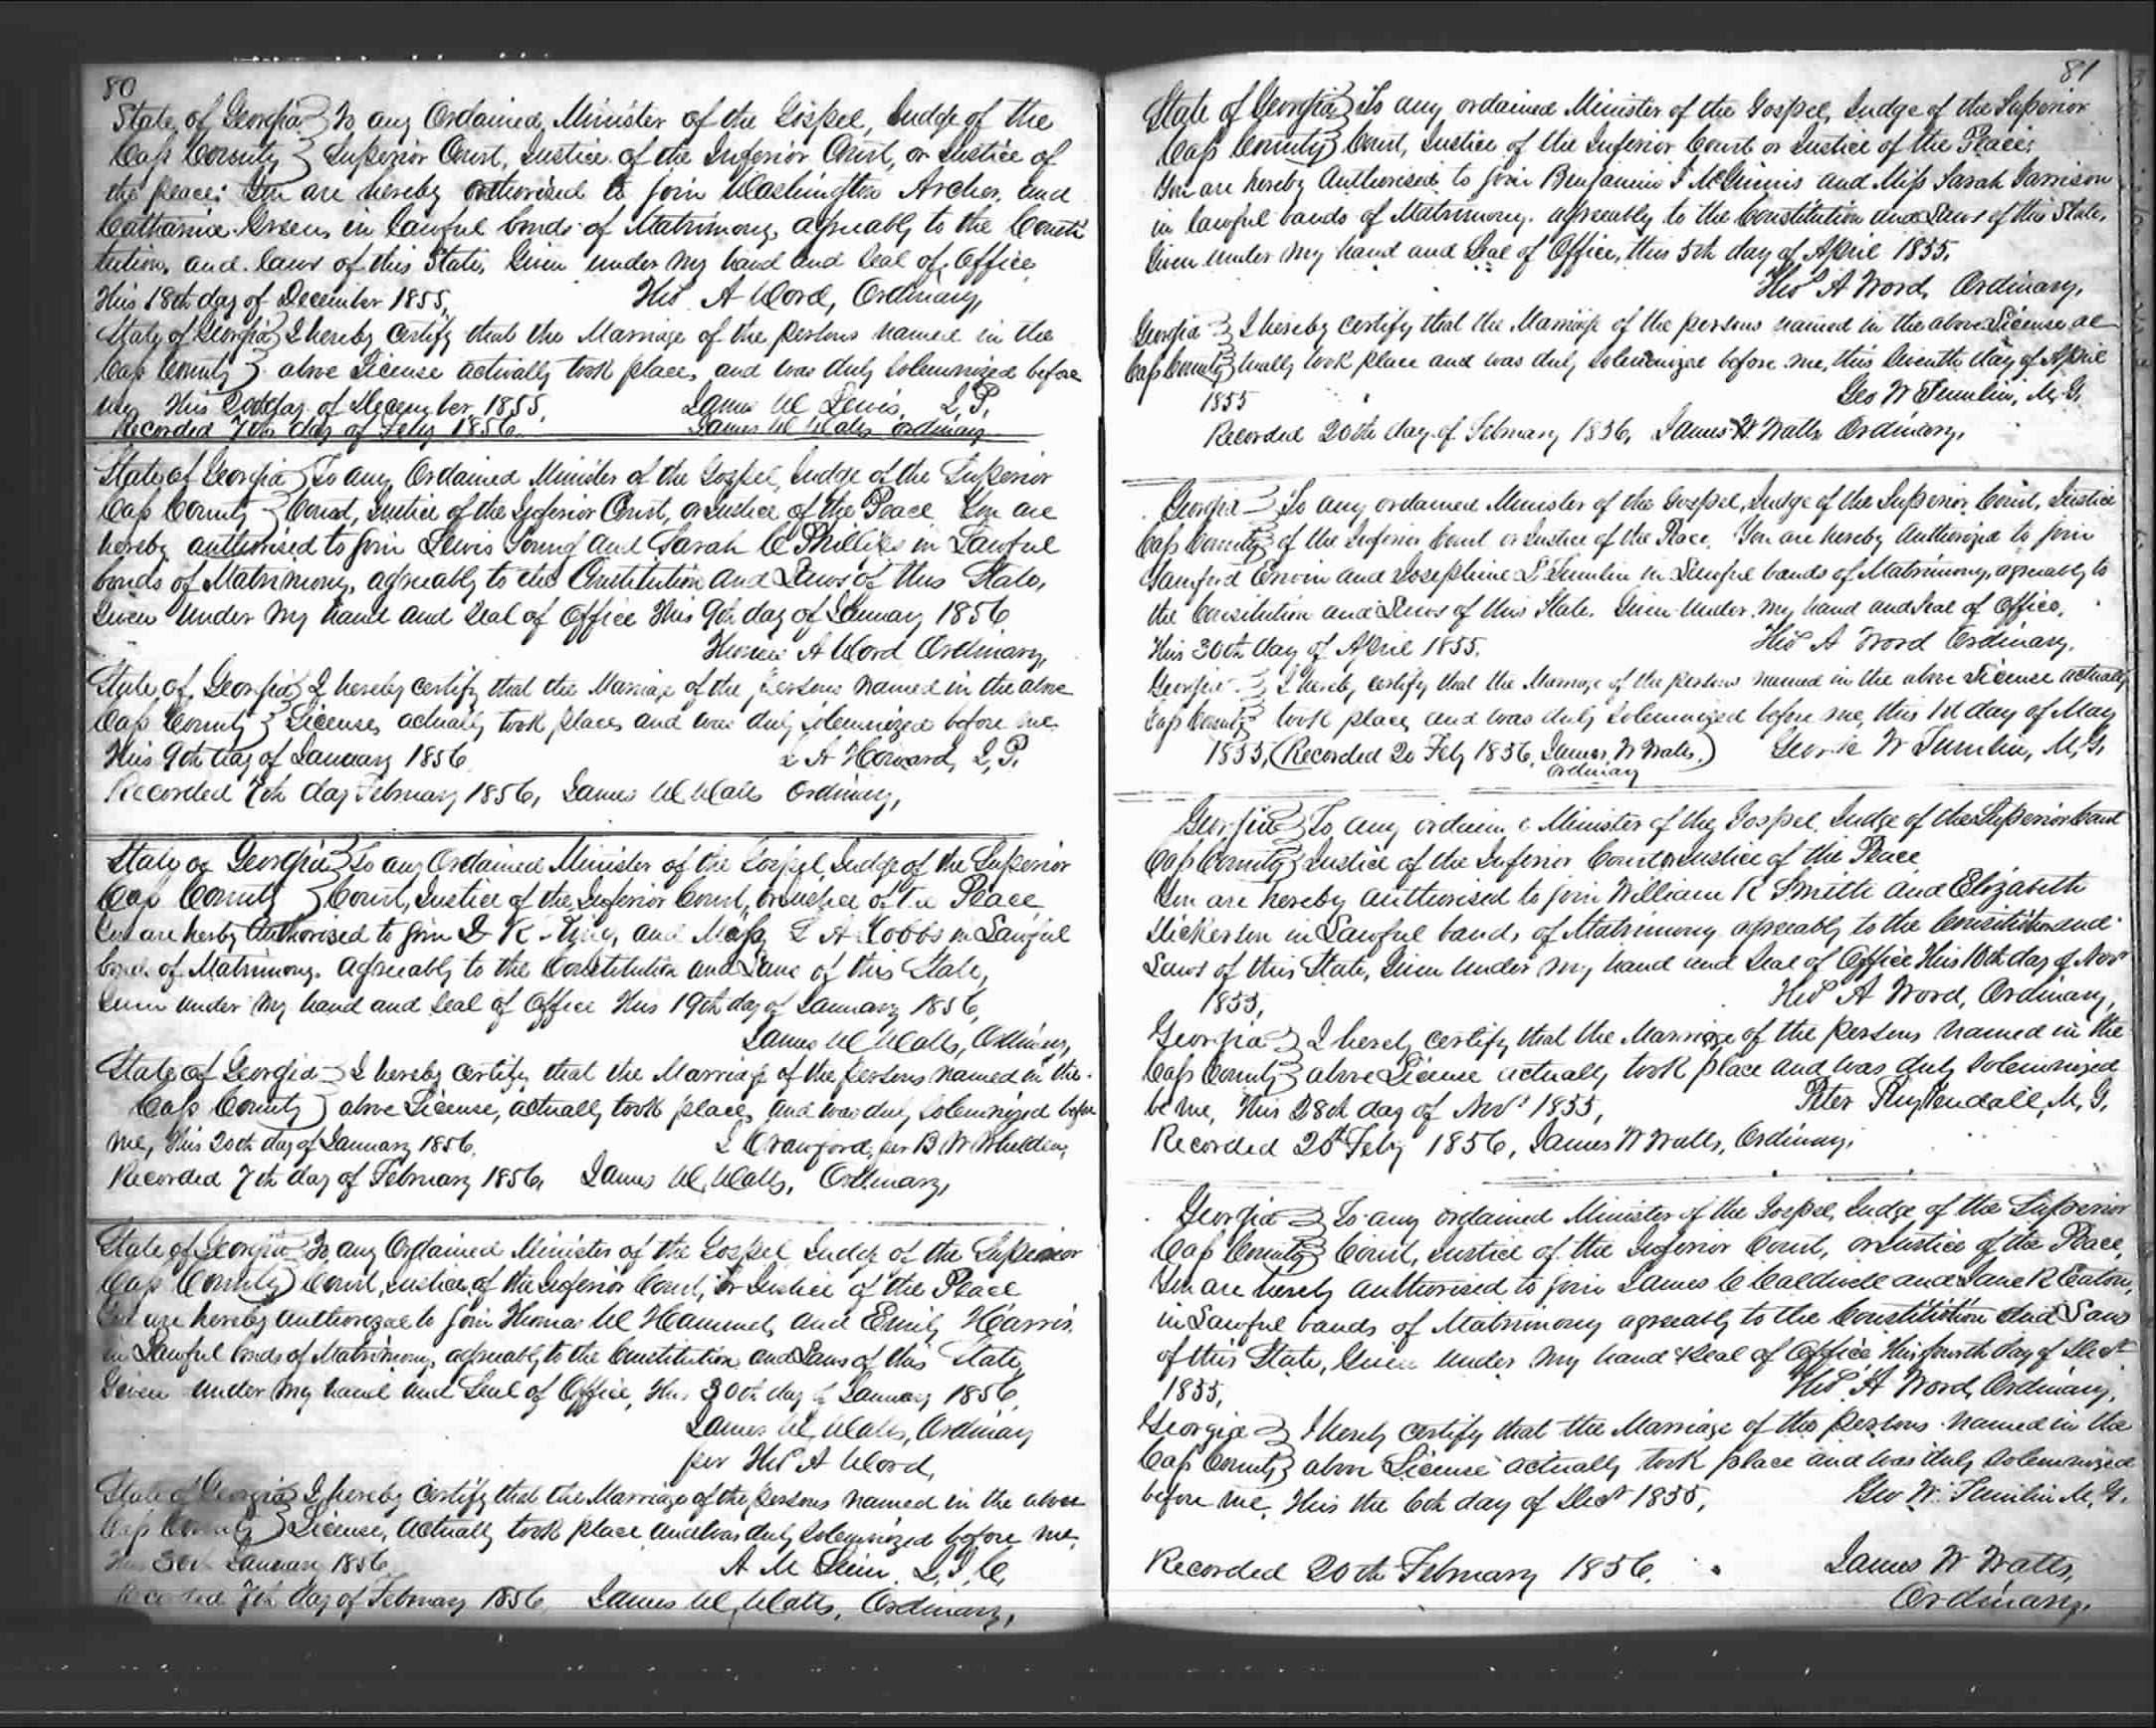 80
State of Georgia } To any Ordained Minister of the Gospel, Judge of the
Cass County } Superior Court, Justice of the Inferior Court, or Justice of
the peace: You are hereby authorised to join Washington Archer, and
Catharine Green, in lawful bonds of Matrimony, agreeably to the Consti
tution, and laws of this State, Given under my hand and Seal of Office,
this 18th day of December 1855, Thos A Word, Ordinary,
State of Georgia } I hereby certify that the Marriage of the persons named in the
Cass County } above License actually took place, and was duly solemnized before
me, this day of December 1855, James W Lewis, J,P,
Recorded 7th day of Feby 1856. James W Watts ordinary
State of Georgia } To any Ordained Minister of the Gospel, Judge of the Superior
Cass County } Court, Justice of the Inferior Court, or Justice of the Peace You are
hereby authorised to join Lewis Young and Sarah C Phillips in Lawful
bonds of Matrimony, agreeably to the Constitution and Laws of this State,
Given under my hand and Seal of Office this 9th day of January 1856
Thomas A Word Ordinary,
State of Georgia } I hereby certify that the Marriage of the persons named in the above
Cass County } License, actually took place, and was duly solemnized before me
this 9th day of January 1856 A Howard, J,P,
Recorded 7th day February 1856, James W Watts Ordinary,
State of Georgia } To any Ordained Minister of the Gospel, Judge of the Superior
Cass County } Court, Justice of the Inferior Court, or Justice of the Peace
You are herby Authorised to join R King, and L A Cobbs in Lawful
bonds of Matrimony. agreeably to the Constitution and Laws of this State,
Given under my hand and Seal of Office this 19th day of January 1856,
James W Watts, Ordinary,
State of Georgia } I hereby certify that the Marriage of the persons named in the
Cass County } above License, actually took place, and was duly solemnized before
me, this 20th day of January 1856, Crawford, per B W Whilden,
Recorded 7th day of February 1856, James W, Watts, Ordinary,
State of Georgia } To any Ordained Minister of the Gospel Judge of the Superior
Cass County } Court, Justice of the Inferior Court, or Justice of the Peace
You are hereby authorized to join Thomas W Hammel, and Emily Harris
in Lawful bonds of Matrimony, agreeably to the Constitution and Laws of this State
Given under my hand and Seal of Office, this 30th day of January 1856,
James W, Watts, Ordinary
per Thos A Word,
State of Georgia } I hereby certify that the Marriage of the persons named in the above
Cass County } License, actually took place and was duly solemnized before me
this 30th January 1856 A M J,I,C,
Recorded 7th day of February 1856 James W, Watts, Ordinary,
81
State of Georgia } To any ordained Minister of the Gospel, Judge of the Superior
Cass County } Court, Justice of the Inferior Court or Justice of the Peace:
You are hereby Authorised to join Benjamin F McGinnis and Miss Sarah Garrison
in lawful bands of Matrimony. agreeably to the Constitution and Laws of this State.
Given under my hand and Seal of Office, this 5th day of April 1855,
Thos A Word, Ordinary,
Georgia } I hereby certify that the Marriage of the persons named in the above License ac
Cass County } tually took place and was duly solemnized before me, this Seventh day of April
1855 Geo W Tumlin, M.G.
Recorded 20th day of February 1856, James W. Watts Ordinary,
Georgia } To any ordained Minister of the Gospel, Judge of the Superior Court, Justice
Cass County } of the Inferior Court or Justice of the Peace. You are hereby Authorized to join
Samford Erwin and Josephine L Tumlin in Lawful bands of Matrimony, agreeably to
the Constitution and Laws of this State. Given under my hand and Seal of Office,
this 30th day of April 1855. Thos A Word Ordinary,
Georgia } I hereby certify that the Marriage of the persons named in the above License actually
Cass County } took place, and was duly solemnized before me, this 1st day of May
1855, (Recorded 20 Feby 1856, James W Watts,) George W Tumlin, M,G,
ordinary
Georgia } To any ordained Minister of the Gospel, Judge of the Superior Court
Cass County } Justice of the Inferior Court or Justice of the Peace
You are hereby authorised to join William R Smith and Elizabeth
Dickerson in Lawful bands of Matrimony agreeably to the Constitution and
Laws of this State, Given under my hand and Seal of Office this 10th day of Novr
1855, Thos A Word, Ordinary,
Georgia } I hereby certify that the Marriage of the persons named in the
Cass County } above License actually took place and was duly solemnized
be me, this 28th day of Novr 1855, Peter Kuykendall, M,G,
Recorded 20th Feby 1856, James W Watts, Ordinary.
Georgia } To any ordained Minister of the Gospel, Judge of the Superior
Cass County } Court, Justice of the Inferior Court, or Justice of the Peace,
You are hereby authorised to join James C Caldwell and Jane R Eaton,
in Lawful bands of Matrimony agreeably to the Constitution and Laws
of this State, Given under my hand & Seal of Office this fourth day of Decr
1855, Thos A Word, Ordinary,
Georgia } I hereby certify that the Marriage of the persons named in the
Cass County } above License actually took place and was duly solemnized
before me, this the 6th day of Decr 1855, Geo W. Tumlin M,G.
Recorded 20th February 1856. James W Watts,
Ordinary,